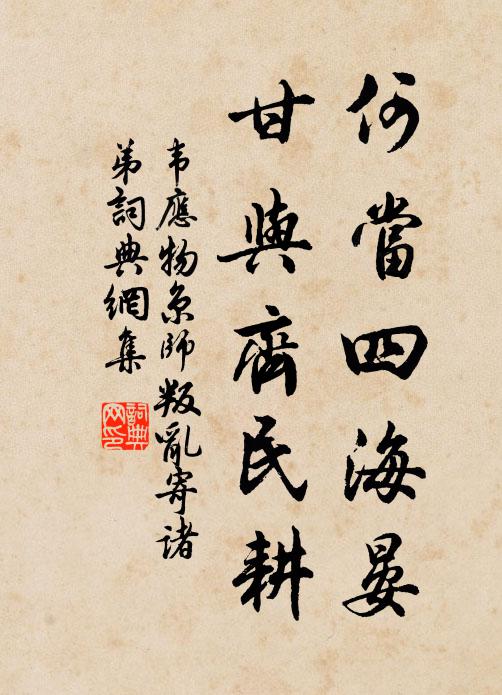 何當四海晏
甘與齊民耕
韦應物京師叛亂寄諸
弟詞典網集
詞典
网印